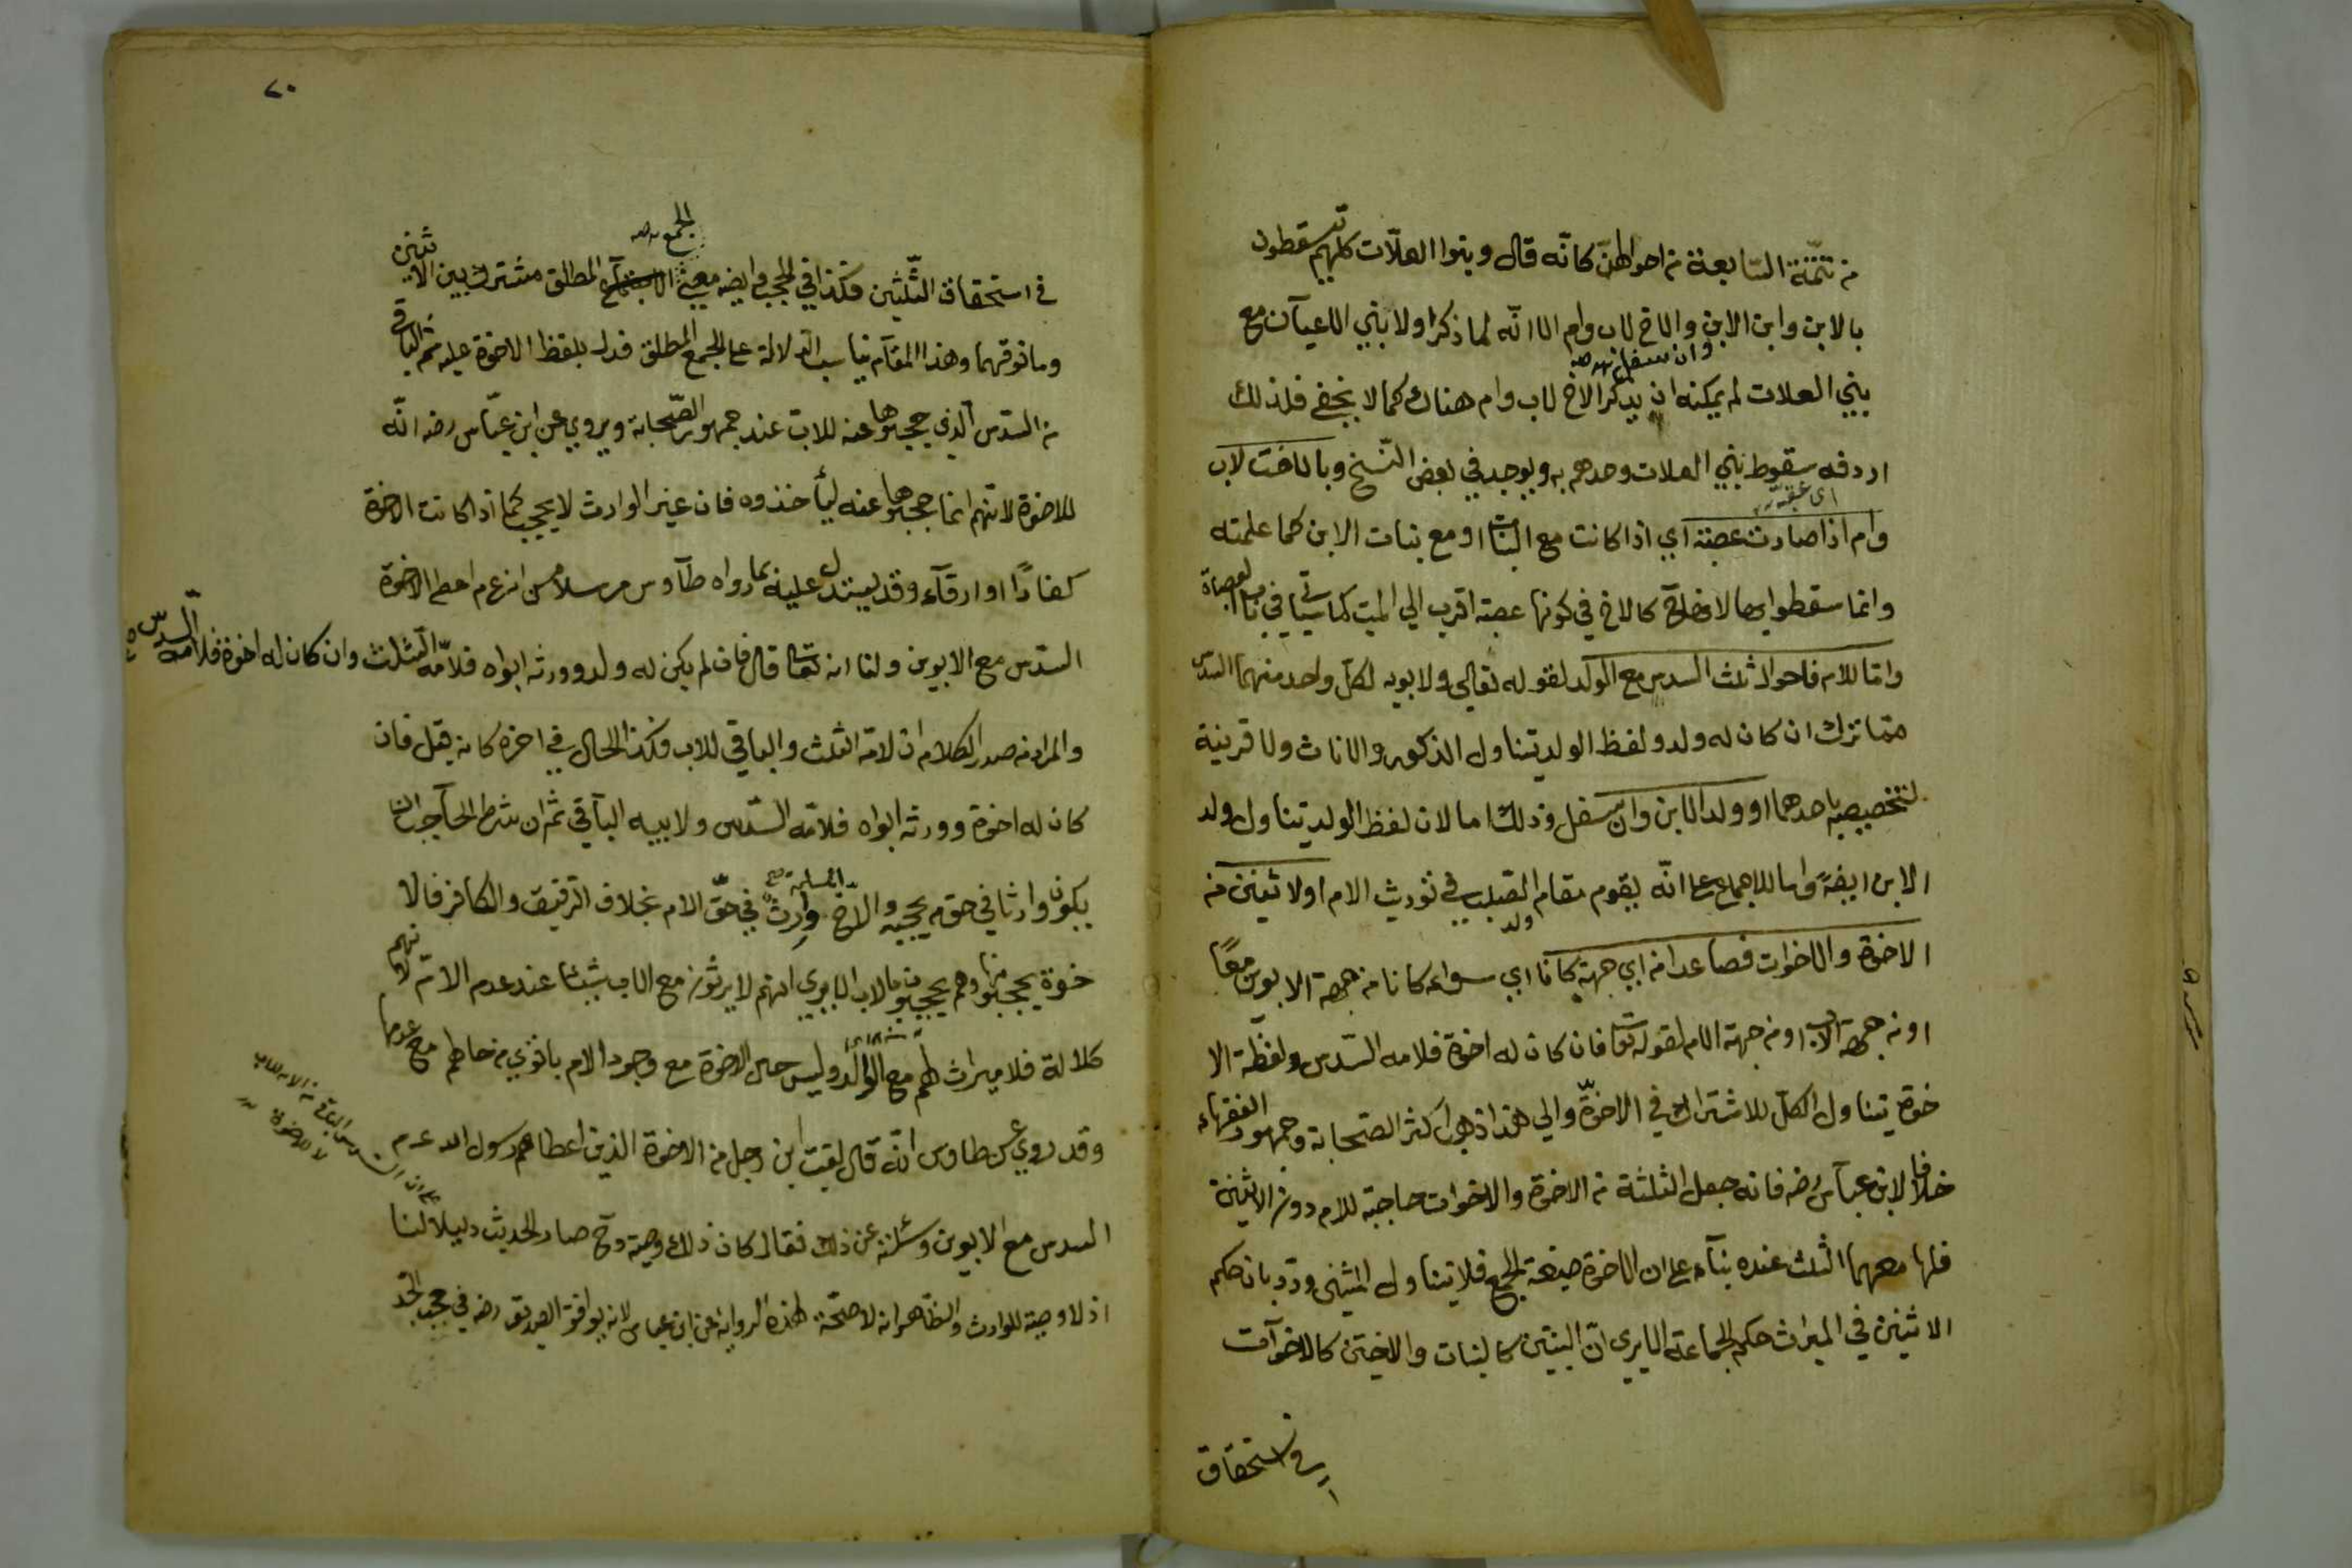 من تتمّة السّابعة من احوالهنّ كانّه قال وبنوا العلّات كلهم يسقطون
بالابن وابن الابن والاخ لاب وام الا انّه لما ذكر اولا بني الاعيآن مع
وان سفل
بني العلات لم يمكنه ان يذكر الاخ لاب وام هناك كما لا يخفى فلذلك
اردفه سقوط بني العلات وحدهم به ويوجد في بعض النّسخ وبالاخت لاب
وام اذا صارت عصبة اي اذا كانت مع البنات او مع بنات الابن كما علمته
وانما سقطوا بها لانها كالاخ في كونها عصبة اقرب الي الميت كما سيأتي في باب العصباة
وامّا للام فاحوال ثلث السدس مع الولد لقوله تعالي ولابويه لكل واحد منهما السدس
ممّا ترك ان كان له ولد ولفظ الولد يتناول الذكور والاناث ولا قرينة
لتخصيصه باحدهما او ولد الابن وان سفل وذلك اما لان لفظ الولد يتناول ولد
الابن ايضًا واما للاجماع على انّه يقوم مقام الصّلب في توريث الام او لاثنين من
ولد
الاخوة والاخوات فصاعدا من اي جهة كانا اي سواء كانا من جهة الابوين معًا
او من جهة الاب او من جهة الام لقوله تعا فان كان له اخوة فلامه السّدس ولفظة الا
خوة يتناول الكلّ للاشتراك في الاخوّة والي هذا ذهب اكثر الصّحابة وجمهور الفقهاء
خلافا لابن عبّاس رضه فانه جعل الثلثة من الاخوة والاخوات حاجبة للام دون الاثنين
فلها معهما الثلث عنده بنآء على ان الاخوة صيغة الجمع فلا يتناول المثنى وردّ بان حكم
الاثنين في الميراث حكم الجماعة الا يرى انّ البنتين كالبنات والاختين كالاخوآت
في استحقاق
٢٠
في استحقاق الثّلثين فكذا في الحجب وايضه معنى الجمع المطلق مشترك بين الاثنين
وما فوقهما وهذا المقام يناسب الدلالة على الجمع المطلق فدل بلفظ الاخوة عليه ثم الباقي
من السّدس الّذي حجبوها عنه للاب عند جمهور الصّحابة ويروي عن ابن عبّاس رضه انّه
للاخوة لانّهم انما حجبوها عنه ليأخذوه فان غير الوارث لا يحجب كما اذا كانت الاخوة
كفارًا او ارقآء وقد يستدل عليه بما رواه طآوس مرسلا من انه عم اعطى الاخوة
السّدس مع الابوين ولنا انه تعا قال فان لم يكن له ولد وورثه ابواه فلامّه الثلث وان كان له اخوة فلامّه السّدس
والمراد من صدر الكلام ان لامّه الثلث والباقي للاب فكذا الحال في اخره كانه قيل فان
كان له اخوة وورثه ابواه فلامّه السّدس ولابيه البآقي ثم ان شرط الحآجب ان
يكون وارثا في حق من يحجبه والاخ المسلم وارث في حقّ الام بخلاف الرقيق والكافر فالا
خوة يحجبونها وهم يحجبون بالاب الا يرى انهم لا يرثون مع الاب شيئا عند عدم الام لانهم
كلالة فلا ميراث لهم مع الوالد وليس حال الاخوة مع وجود الام باقوي من حالهم مع عدمها
وقد روي عن طاوس انّه قال لقيت ابن رجل من الاخوة الذين اعطاهم رسول الله عم
السدس مع الابوين وسئلته عن ذلك فقال كان ذلك وصية وح صار الحديث دليلا لنا
اذ لا وصية للوارث والظّاهر انه لا صحّة لهذه الرواية عن ابن عباس لانه يوافق الصديق رضه في حجب الجد
على ان السدس الباقي من الام للاب
لا للاخوة